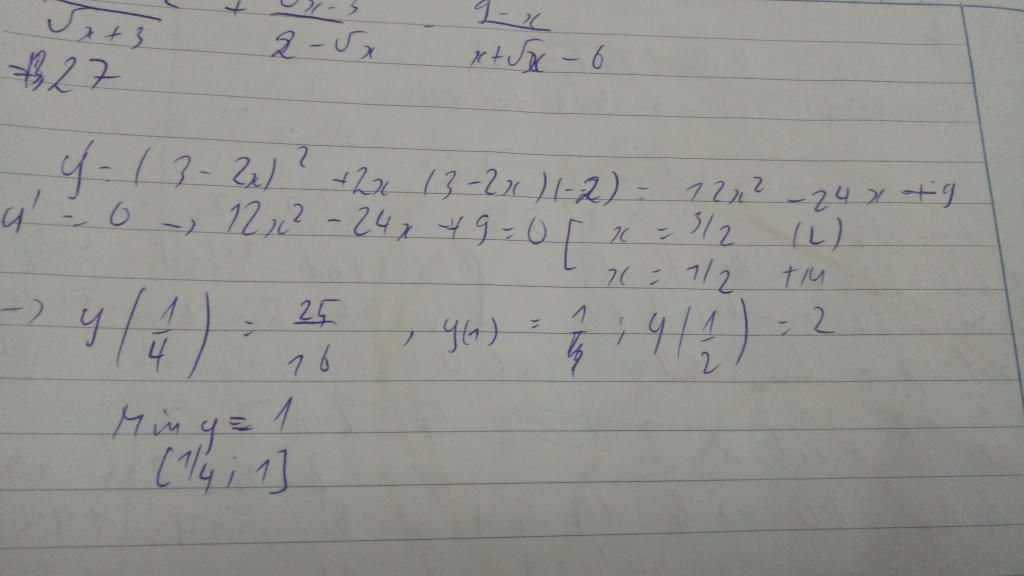 √x+3 + √x-3 / 2-√x - 9-x / x+√x-6
B27
y' = (3-2x)² +2x (3-2x)(-2) = 12x² -24x +9
y' = 0 → 12x² -24x +9=0 [ x = 3/2 (L)
x = 1/2 +M
→ y(1/4) = 25/16 , y(1) = 1 ; y(1/2) = 2
Min y = 1
[1/4; 1]